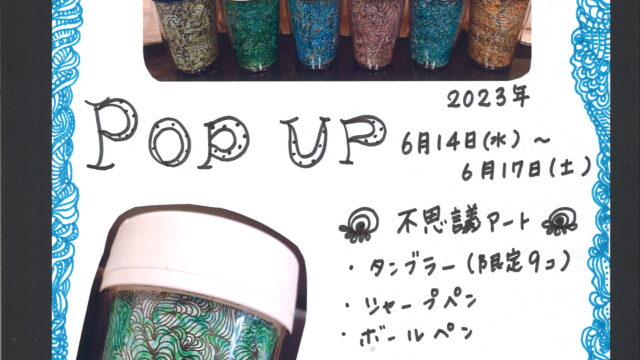 POP UP
2023年
6月14日(水) ～
6月17日(土)
不思議アート
・タンブラー(限定9コ)
・シャープペン
・ボールペン